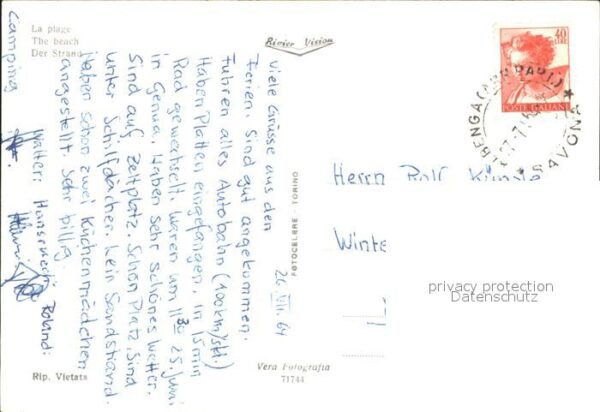 La plage
The beach
Der Strand
Camping
Rivier Vision
26. VII. 64
Viele Grüsse aus den
Ferien. Sind gut angekommen.
Fuhren alles Autobahn (100km/std.)
Haben Platten eingefangen, in 15 min
Rad gewechselt. Waren um 11 30 25. Juni
in Genua. Haben sehr schönes Wetter.
Sind auf Zeltplatz. Schön Platz. Sind
unter Schilfdächer. Kein Sandstrand.
Haben schon zwei Küchenmädchen
angestellt. Sehr billig.
Walter: Hansruedi: Roland:
FOTOCELERE TORINO
40
POSTE ITALIANE
SAVONA
Herrn Rolf
Winte
privacy protection
Datenschutz
Rip. Vietata
Vera Fotografia
71744